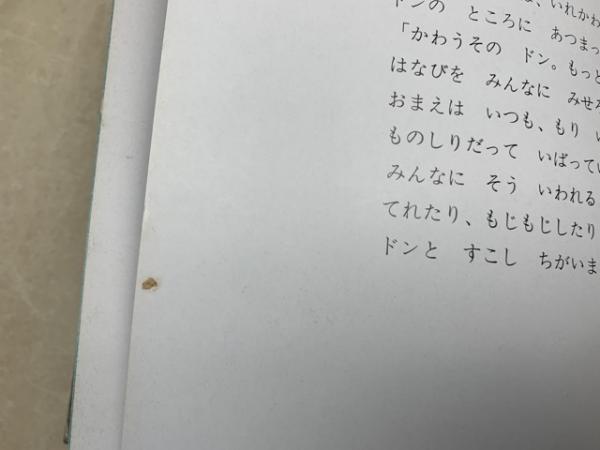 いれかわ
ドンの ところに あつまっ
「かわうその ドン。もっと
はなびを みんなに みせ
おまえは いつも、もり
ものしりだって いばってい
みんなに そう いわれる
てれたり、もじもじしたり
ドンと すこし ちがいま